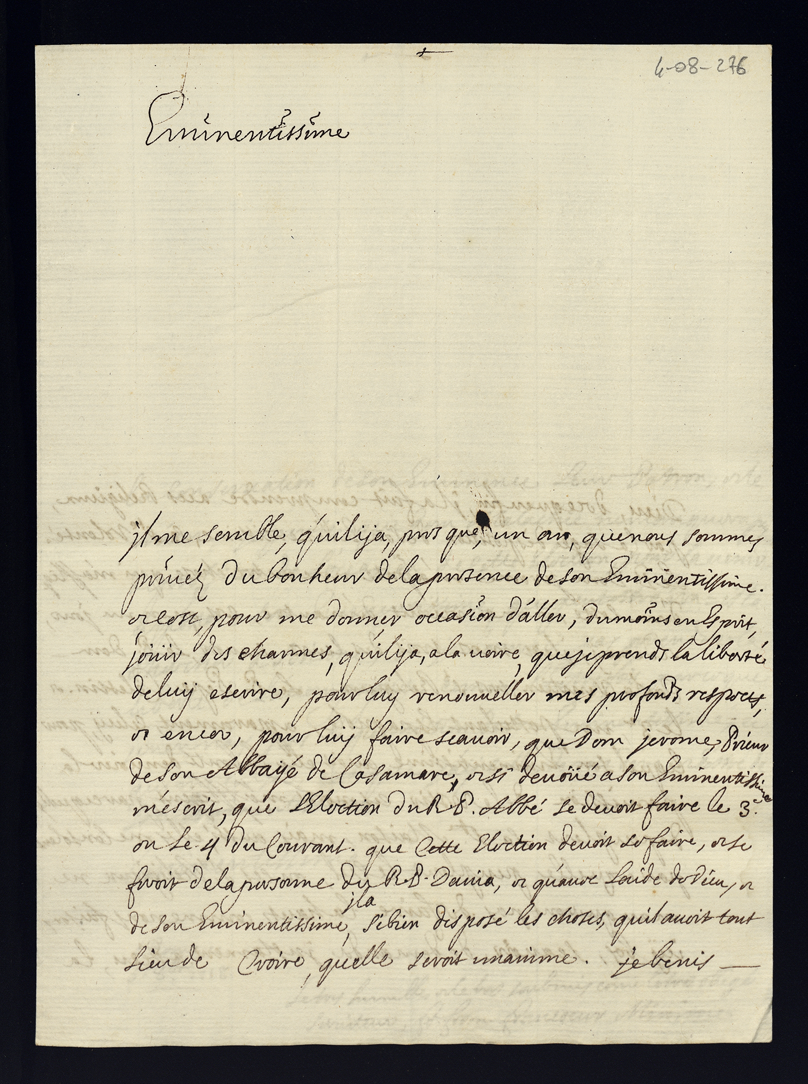 +
4-08-276
Eminentissime
jl me semble, quilija, pres que, un an, que nous sommes
privéz du bonheur de la presence de son Eminentissime.
et cest, pour me donner occasion d'aller, du moins en Esprit,
joüir des charmes, quilija, a la voire, que je prends la liberté
de luij escrire, pour luy renouveller mes profonds respects,
et encor, pour luij faire scavoir, que Dom jerome, Prieur
de son Abbaÿe de Casamare, et si devoüé a son Eminentissime
m'escrit, que l'Election du R P. Abbé se devoit faire le 3.e
ou le 4 du Courant. que Cette Election devoit se faire, et se
feroit de la persone du R P. Dauia, et qu'avec l'aide de Dieu, et
de son Eminentissime, jla si bien disposé les choses, quil avoit tout
lieu de Croire, quelle seroit unanime. je benis —